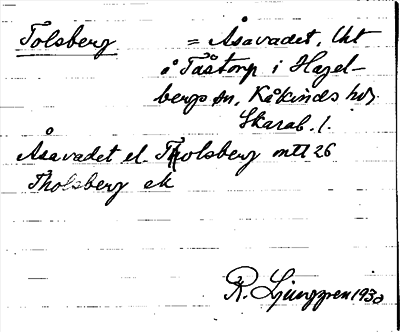 Tolsberg = Åsavadet, Uht
å Tåstorp i Hagel-
bergs sn, Kåkinds hd,
Skarab. l.
Åsavadet el. Tholsberg mtl 26
Tholsberg ek
R. Ljunggren 1930